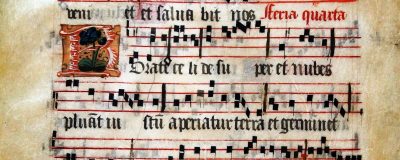 veni et et salua bit nos feria quarta
Rorate ce li de su per et nubes
pluant iu stū aperiatur terra et germinet